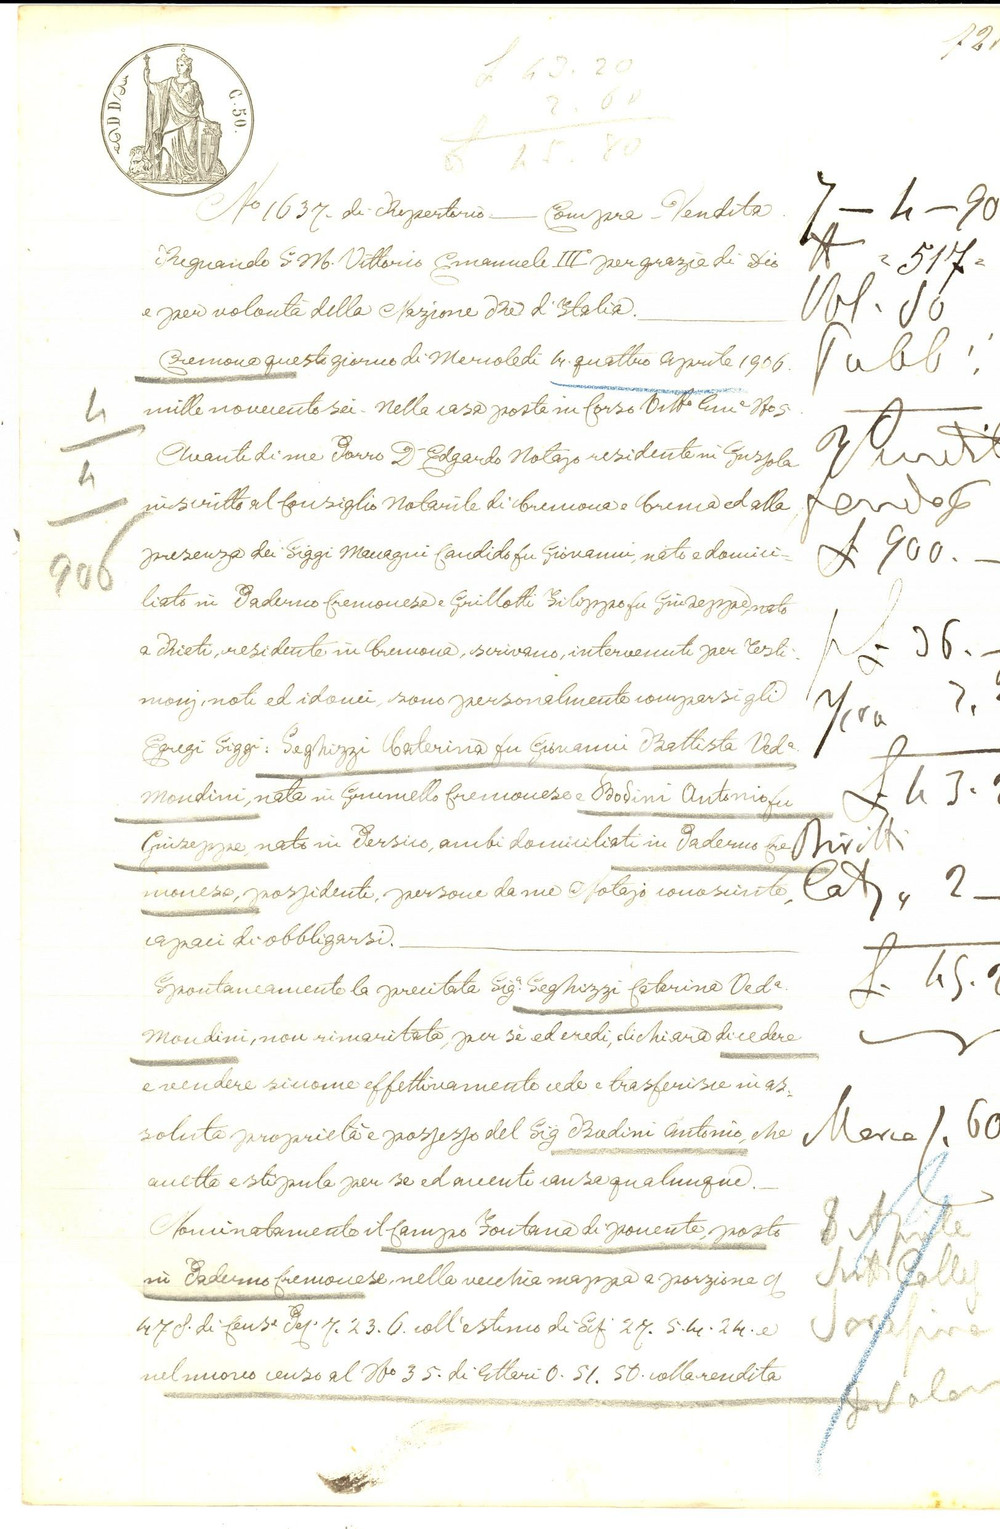 721
C. 50.
£ 43.20
2.60
£ 45.80
No 1637. di Repertorio — Compra-Vendita
Regnando S. M. Vittorio Emanuele III per grazia di Dio
e per volontà della Nazione Re d'Italia.
Cremona questo giorno di Mercoledì 4. quattro Aprile 1906.
mille novecento sei. Nella casa posta in Corso Vitt.o Em.e No 5.
Avanti di me Porro Dr Edgardo Notajo residente in Gussola
inscritto al Consiglio Notarile di Cremona e Crema ed alla
presenza dei Siggi Manragni Candido fu Giovanni, nato e domici-
liato in Paderno Cremonese e Grillotti Filippo fu Giuseppe, nato
a Rieti, residente in Cremona, scrivano, intervenuti per Testi-
monj, noti ed idonei, sono personalmente comparsi gli
Egregi Siggi: Seghizzi Caterina fu Giovanni Battista Ved.a
Mondini, nata in Grumello Cremonese e Bodini Antonio fu
Giuseppe, nato in Persico, ambi domiciliati in Paderno Cre
monese, possidenti, persone da me Notajo conosciute,
capaci di obbligarsi.
Spontaneamente la precitata Sig.a Seghizzi Caterina Ved.a
Mondini, non rimaritata, per sè ed eredi, dichiara di cedere
e vendere siccome effettivamente cede e trasferisce in as-
soluta proprietà e possesso del Sig Bodini Antonio, che
accetta e stipula per se ed aventi causa qualunque.
Nominatamente il Campo Fontana di ponente, posto
in Paderno Cremonese, nella vecchia mappa a porzione di
47 di Cens.e Per. 7. 23. 6. coll'estimo di 27. 5. 4. 24. e
nel nuovo censo al No 35. di Ettari 0. 51. 50. colla rendita
4
4
906
7 – 4 – 90
No = 517 =
Vol. 80
Pubb!
Vendit
£ 900. –
£ 36. –
7.
£ 43.2
Diritti
Cat. " 2 –
£. 45.2
Marca £. 60
8 Aprile